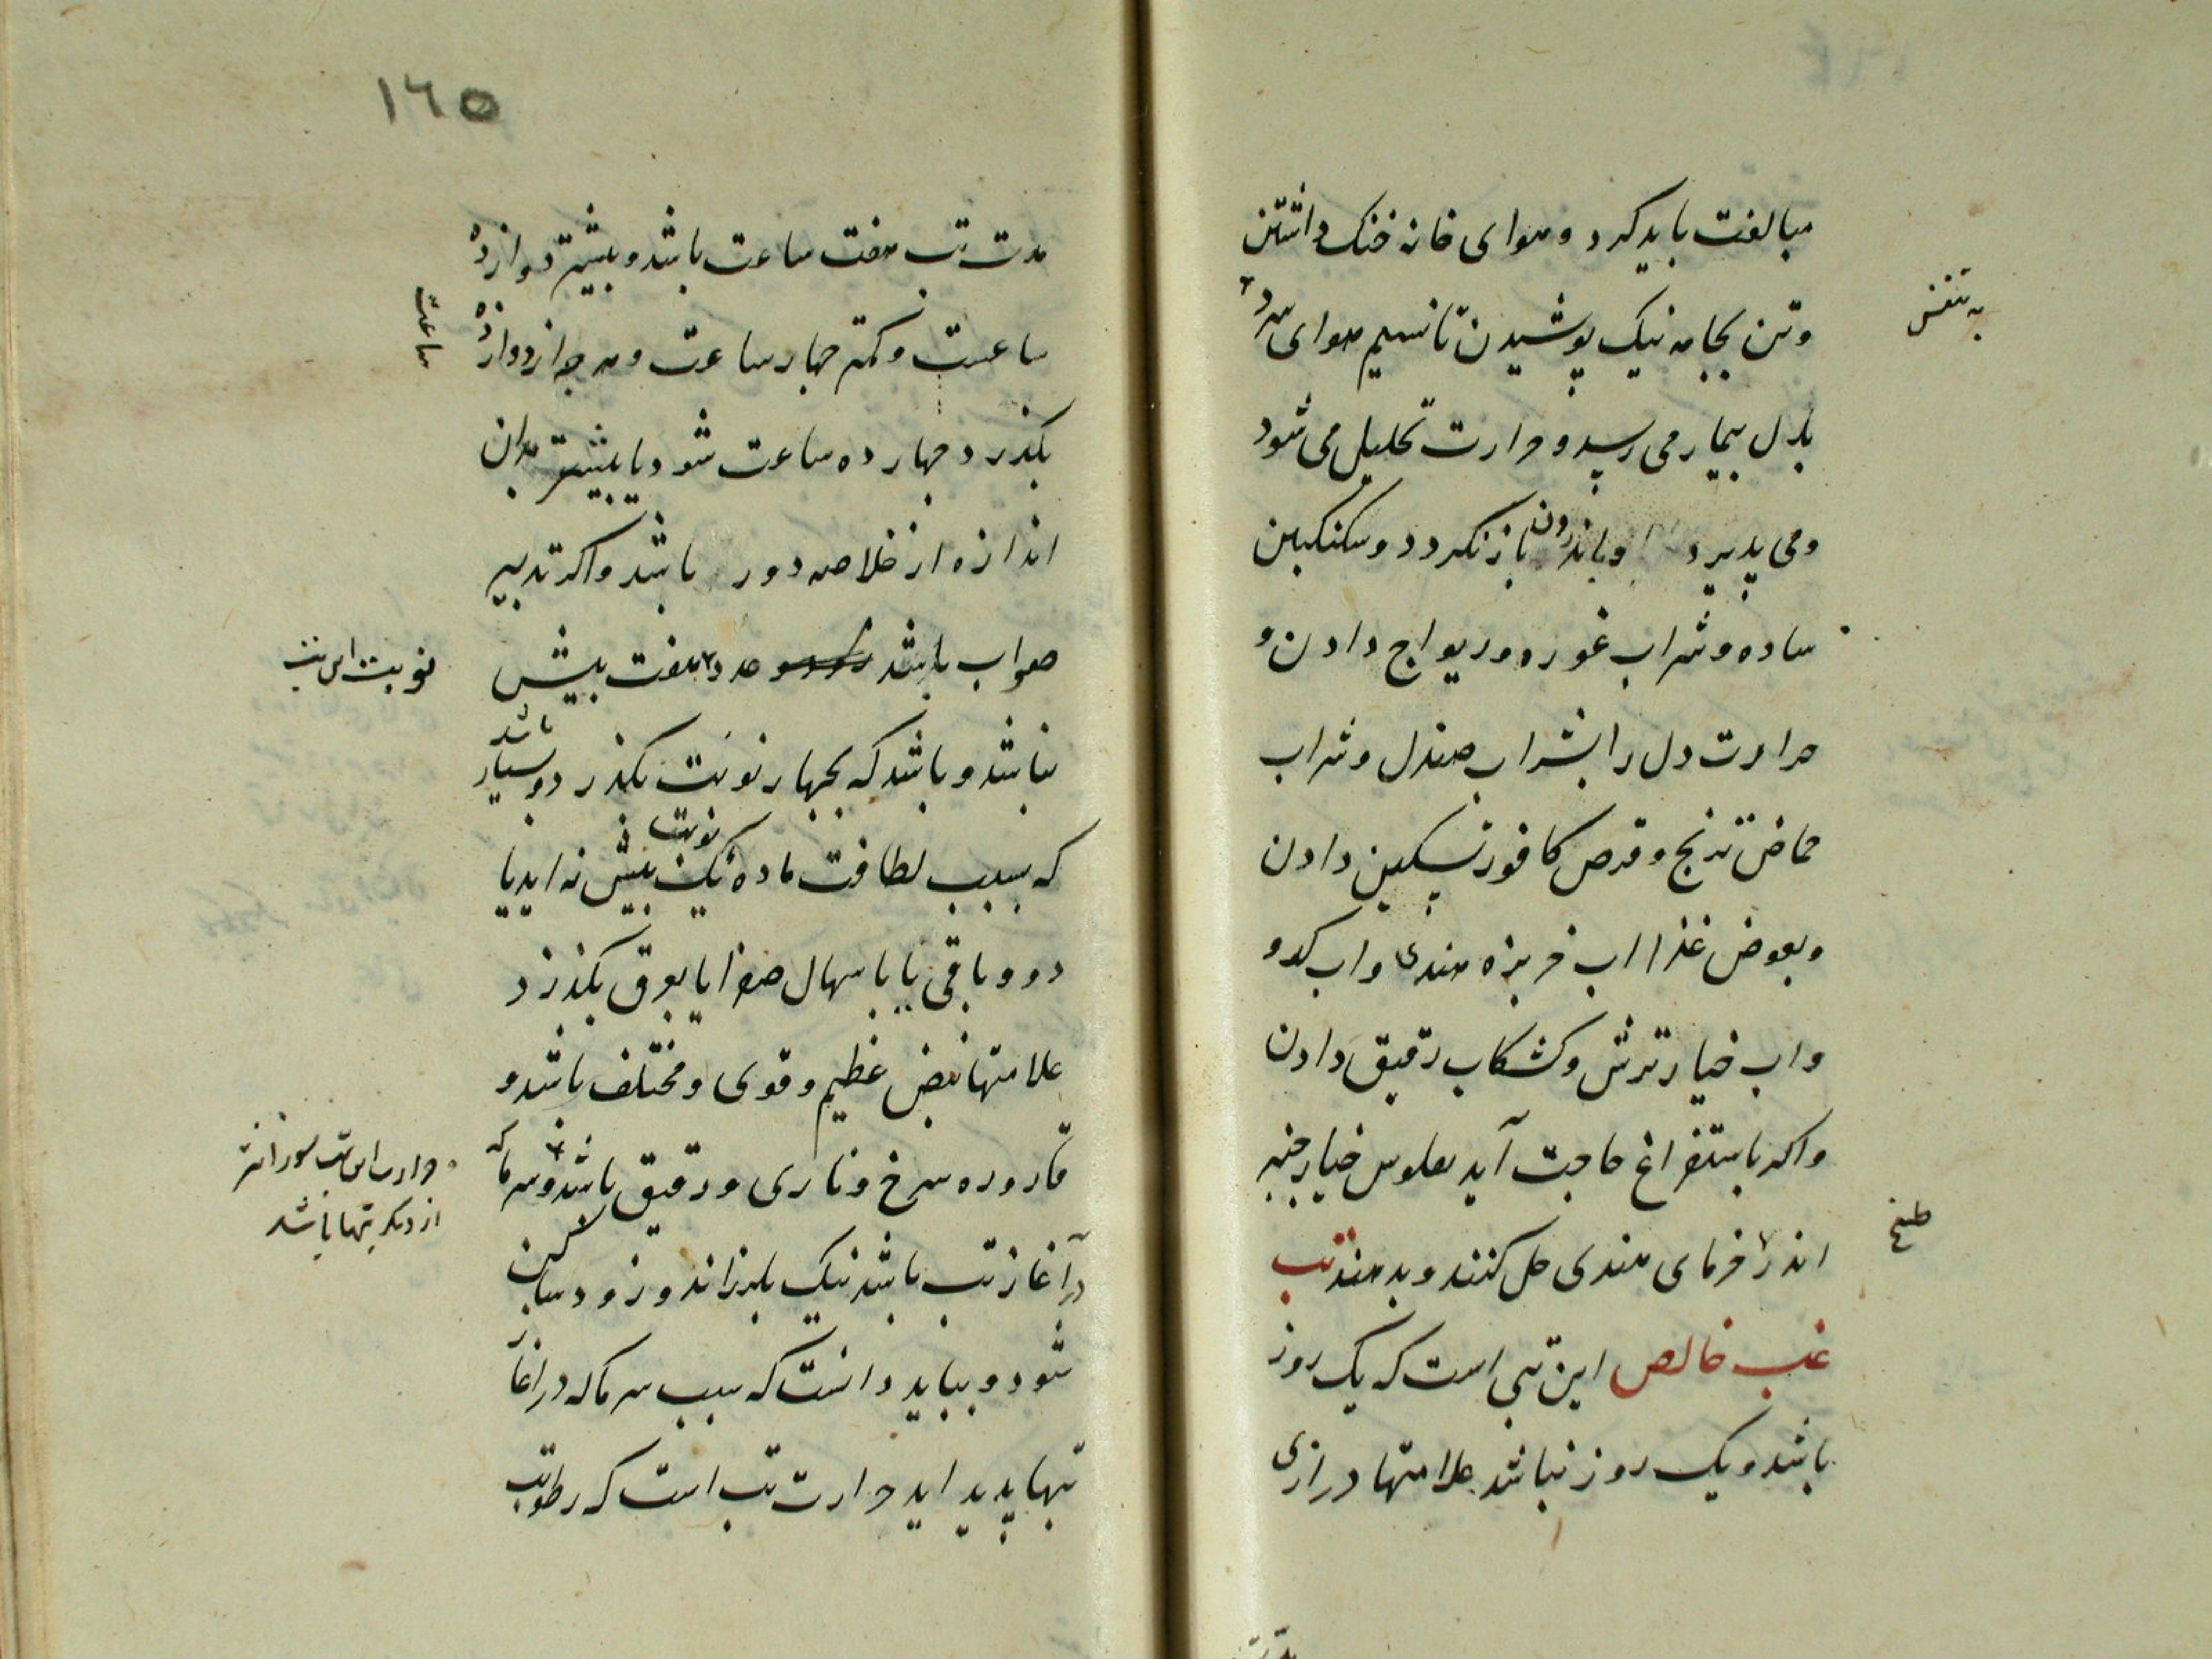 مبالغت باید کرد و هوای خانه خنک داشتن
و تن بجامه نیک پوشیدن تا نسیم هوای سرد
به تنفس
بدل بیمار می رسد و حرارت تحلیل می شود
و می پذیرد و باندرون باز نکردد و سکنکبین
ساده و شراب غوره و ریواج دادن و
حرارت دل را بشراب صندل و شراب
حماض ترنج و قرص کافور تسکین دادن
و بعوض غذا اب خربزه هندی و اب کدو
و اب خیار ترش و کشکاب رقیق دادن
و اکر باستفراغ حاجت آید بفلوس خیار چنبر
اندر خرمای هندی حل کنند و بدهند تب
طبیخ
غب خالص این تبی است که یک روز
باشد و یک روز نباشد علامتها درازی
١٦٥
مدت تب هفت ساعت باشد و بیشتر دوازده
ساعت و کمتر چهار ساعت و هر چه از دوازده
ساعت
بکذرد چهارده ساعت شود یا بیشتر بدان
اندازه از خلاصه دور باشد و اکر تدبیر
صواب باشد عدد هفت بیش
نوبت این تب
نباشد و باشد که بچهار نوبت بکذرد و بسیار
باشد
که بسبب لطافت ماده یک نوبت بیش نه اید یا
دو و باقی یا باسهال صفرا یا بعرق بکذرد
علامتها نبض عظیم و قوی و مختلف باشد و
قاروره سرخ و ناری و رقیق باشد و سرما که
و حرارت این تب سوزانتر
از دیکر تبها باشد
در آغاز تب باشد نیک بلرزاند و زود ساکن
شود و بباید دانست که سبب سرما که در اغاز
تبها پدید اید حرارت تب است که رطوبت